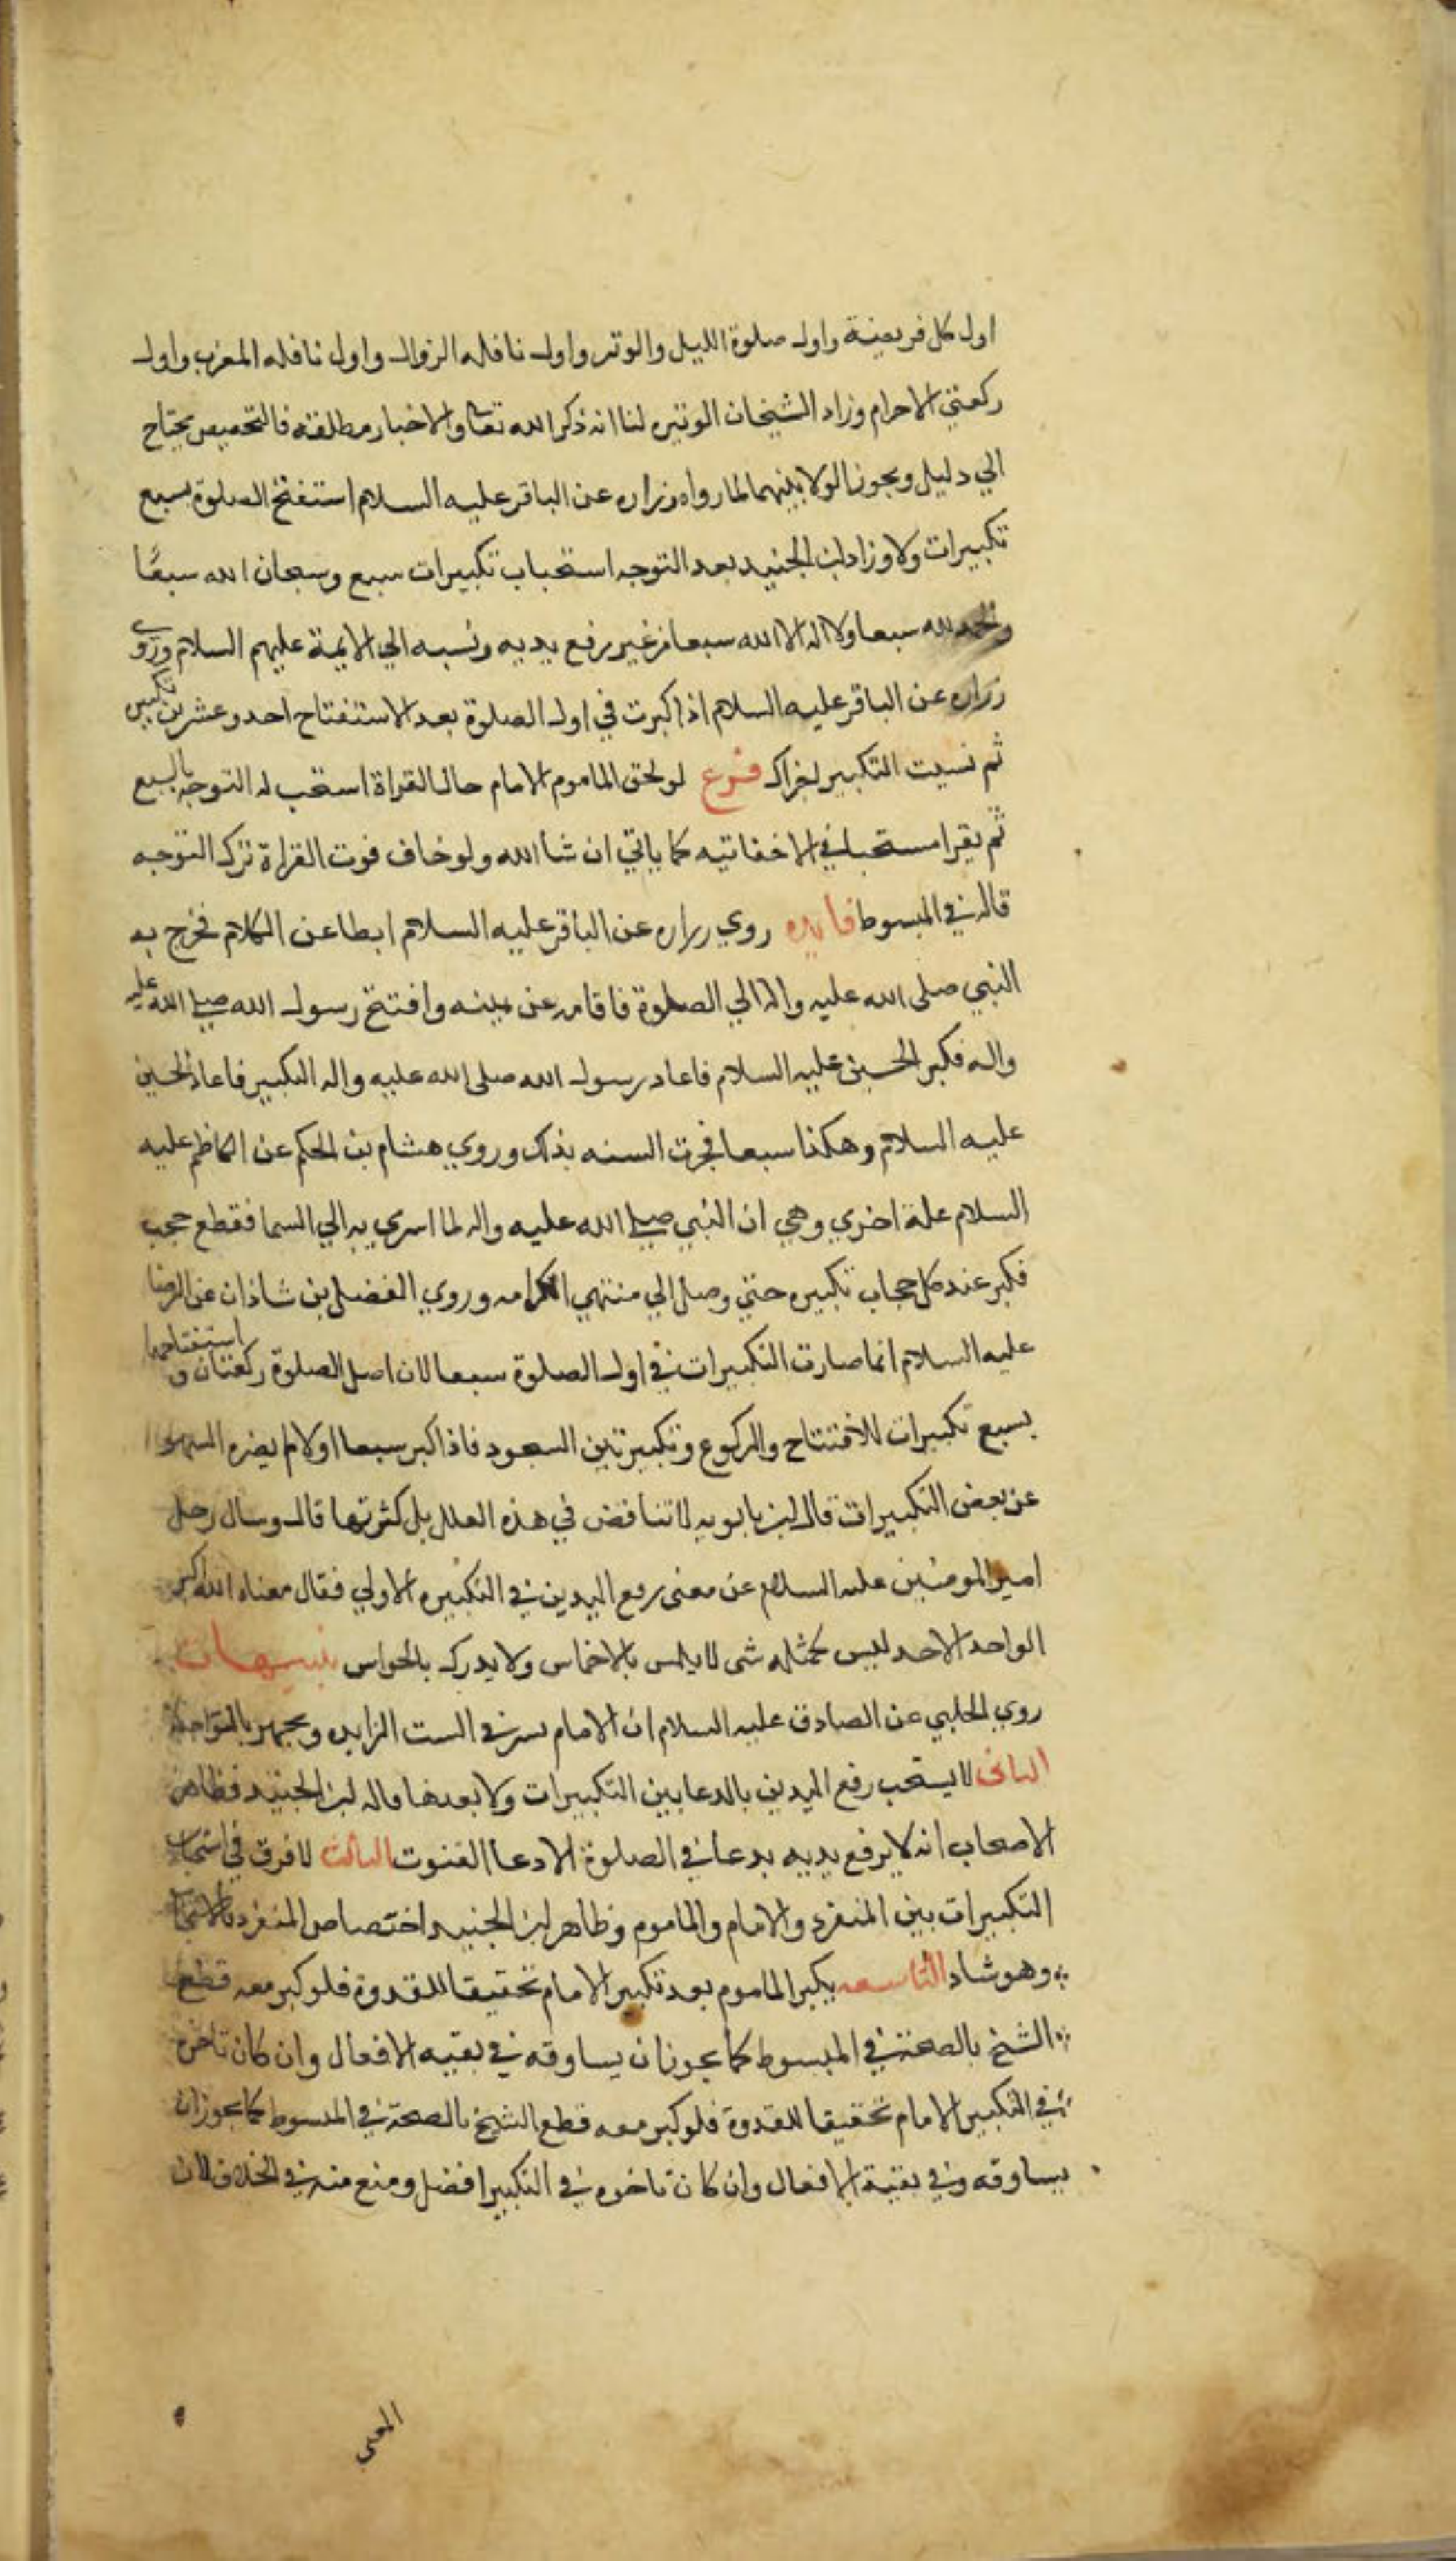 اول كل فريضة واول صلوة الليل والوتر واول نافله الزوال واول نافله المغرب واول
ركعتي الاحرام وزاد الشيخان الوتيره لنا انه ذكر الله تعالى والاخبار مطلقه فالتخصيص يحتاج
الي دليل ويجوز الولا بينهما لما رواه زراره عن الباقر عليه السلام استفتح الصلوة بسبع
تكبيرات ولا وزاد ابن الجنيد بعد التوجه استحباب تكبيرات سبع وسبحان الله سبعًا
والحمد لله سبعا ولا اله الا الله سبعا من غير رفع يديه ونسبه الي الايمة عليهم السلام وروي
زراره عن الباقر عليه السلام اذا كبرت في اول الصلوة بعد الاستفتاح احد وعشرين تكبيره
ثم نسيت التكبير اجزاك فرع لو لحق الماموم الامام حال القراة استحب له التوجه بالسبع
ثم يقرا مستحبا في الاخفاتيه كما ياتي ان شا الله ولو خاف فوت القراة ترك التوجه
قاله في المبسوط فايده روي زراره عن الباقر عليه السلام ابطا عن الكلام فخرج به
النبي صلى الله عليه واله الي الصلوة فاقامه عن يمينه وافتتح رسول الله صلى الله عليه
واله فكبر الحسين عليه السلام فاعاد رسول الله صلى الله عليه واله التكبير فاعاد الحسين
عليه السلام وهكذا سبعا فجرت السنه بذلك وروي هشام بن الحكم عن الكاظم عليه
السلام علة اخري وهي ان النبي صلى الله عليه واله لما اسري به الي السما فقطع حجب
فكبر عند كل حجاب تكبيره حتي وصل الي منتهي الكرامه وروي الفضل بن شاذان عن الرضا
عليه السلام انما صارت التكبيرات في اول الصلوة سبعا لان اصل الصلوة ركعتان و استفتاحهما
بسبع تكبيرات للافتتاح والركوع وتكبيرتين السجود فاذا كبر سبعا اولا لم يضره السهو
عن بعض التكبيرات قال ابن بابويه لا تناقض في هذه العلل بل كثرتها قال وسال رجل
امير المومنين عليه السلام عن معنى رفع اليدين في التكبيره الاولي فقال معناه الله اكبر
الواحد الاحد ليس كمثله شى لا يلمس بالاخماس ولا يدرك بالحواس تنبيهات
روي الحلبي عن الصادق عليه السلام ان الامام يسر في الست الزايده ويجهر بالواحدة
الثانى لا يستحب رفع اليدين بالدعا بين التكبيرات ولا بعدها قاله ابن الجنيد فظاهر
الاصحاب انه لا يرفع يديه بدعا في الصلوة الا دعا القنوت الثالث لا فرق في استحباب
التكبيرات بين المنفرد والامام والماموم وظاهر ابن الجنيد اختصاص المنفرد بالاستحباب
وهو شاد التاسعه يكبر الماموم بعد تكبير الامام تحقيقا للقدوة فلو كبر معه قطع
الشيخ بالصحة في المبسوط كما يجوز ان يساوقه في بقيه الافعال وان كان تاخره
في التكبير الامام تحقيقا للقدوة فلو كبر معه قطع الشيخ بالصحة في المبسوط كما يجوز ان
يساوقه وفي بقية الافعال وان كان تاخره في التكبير افضل ومنع منه في الخلاف لان